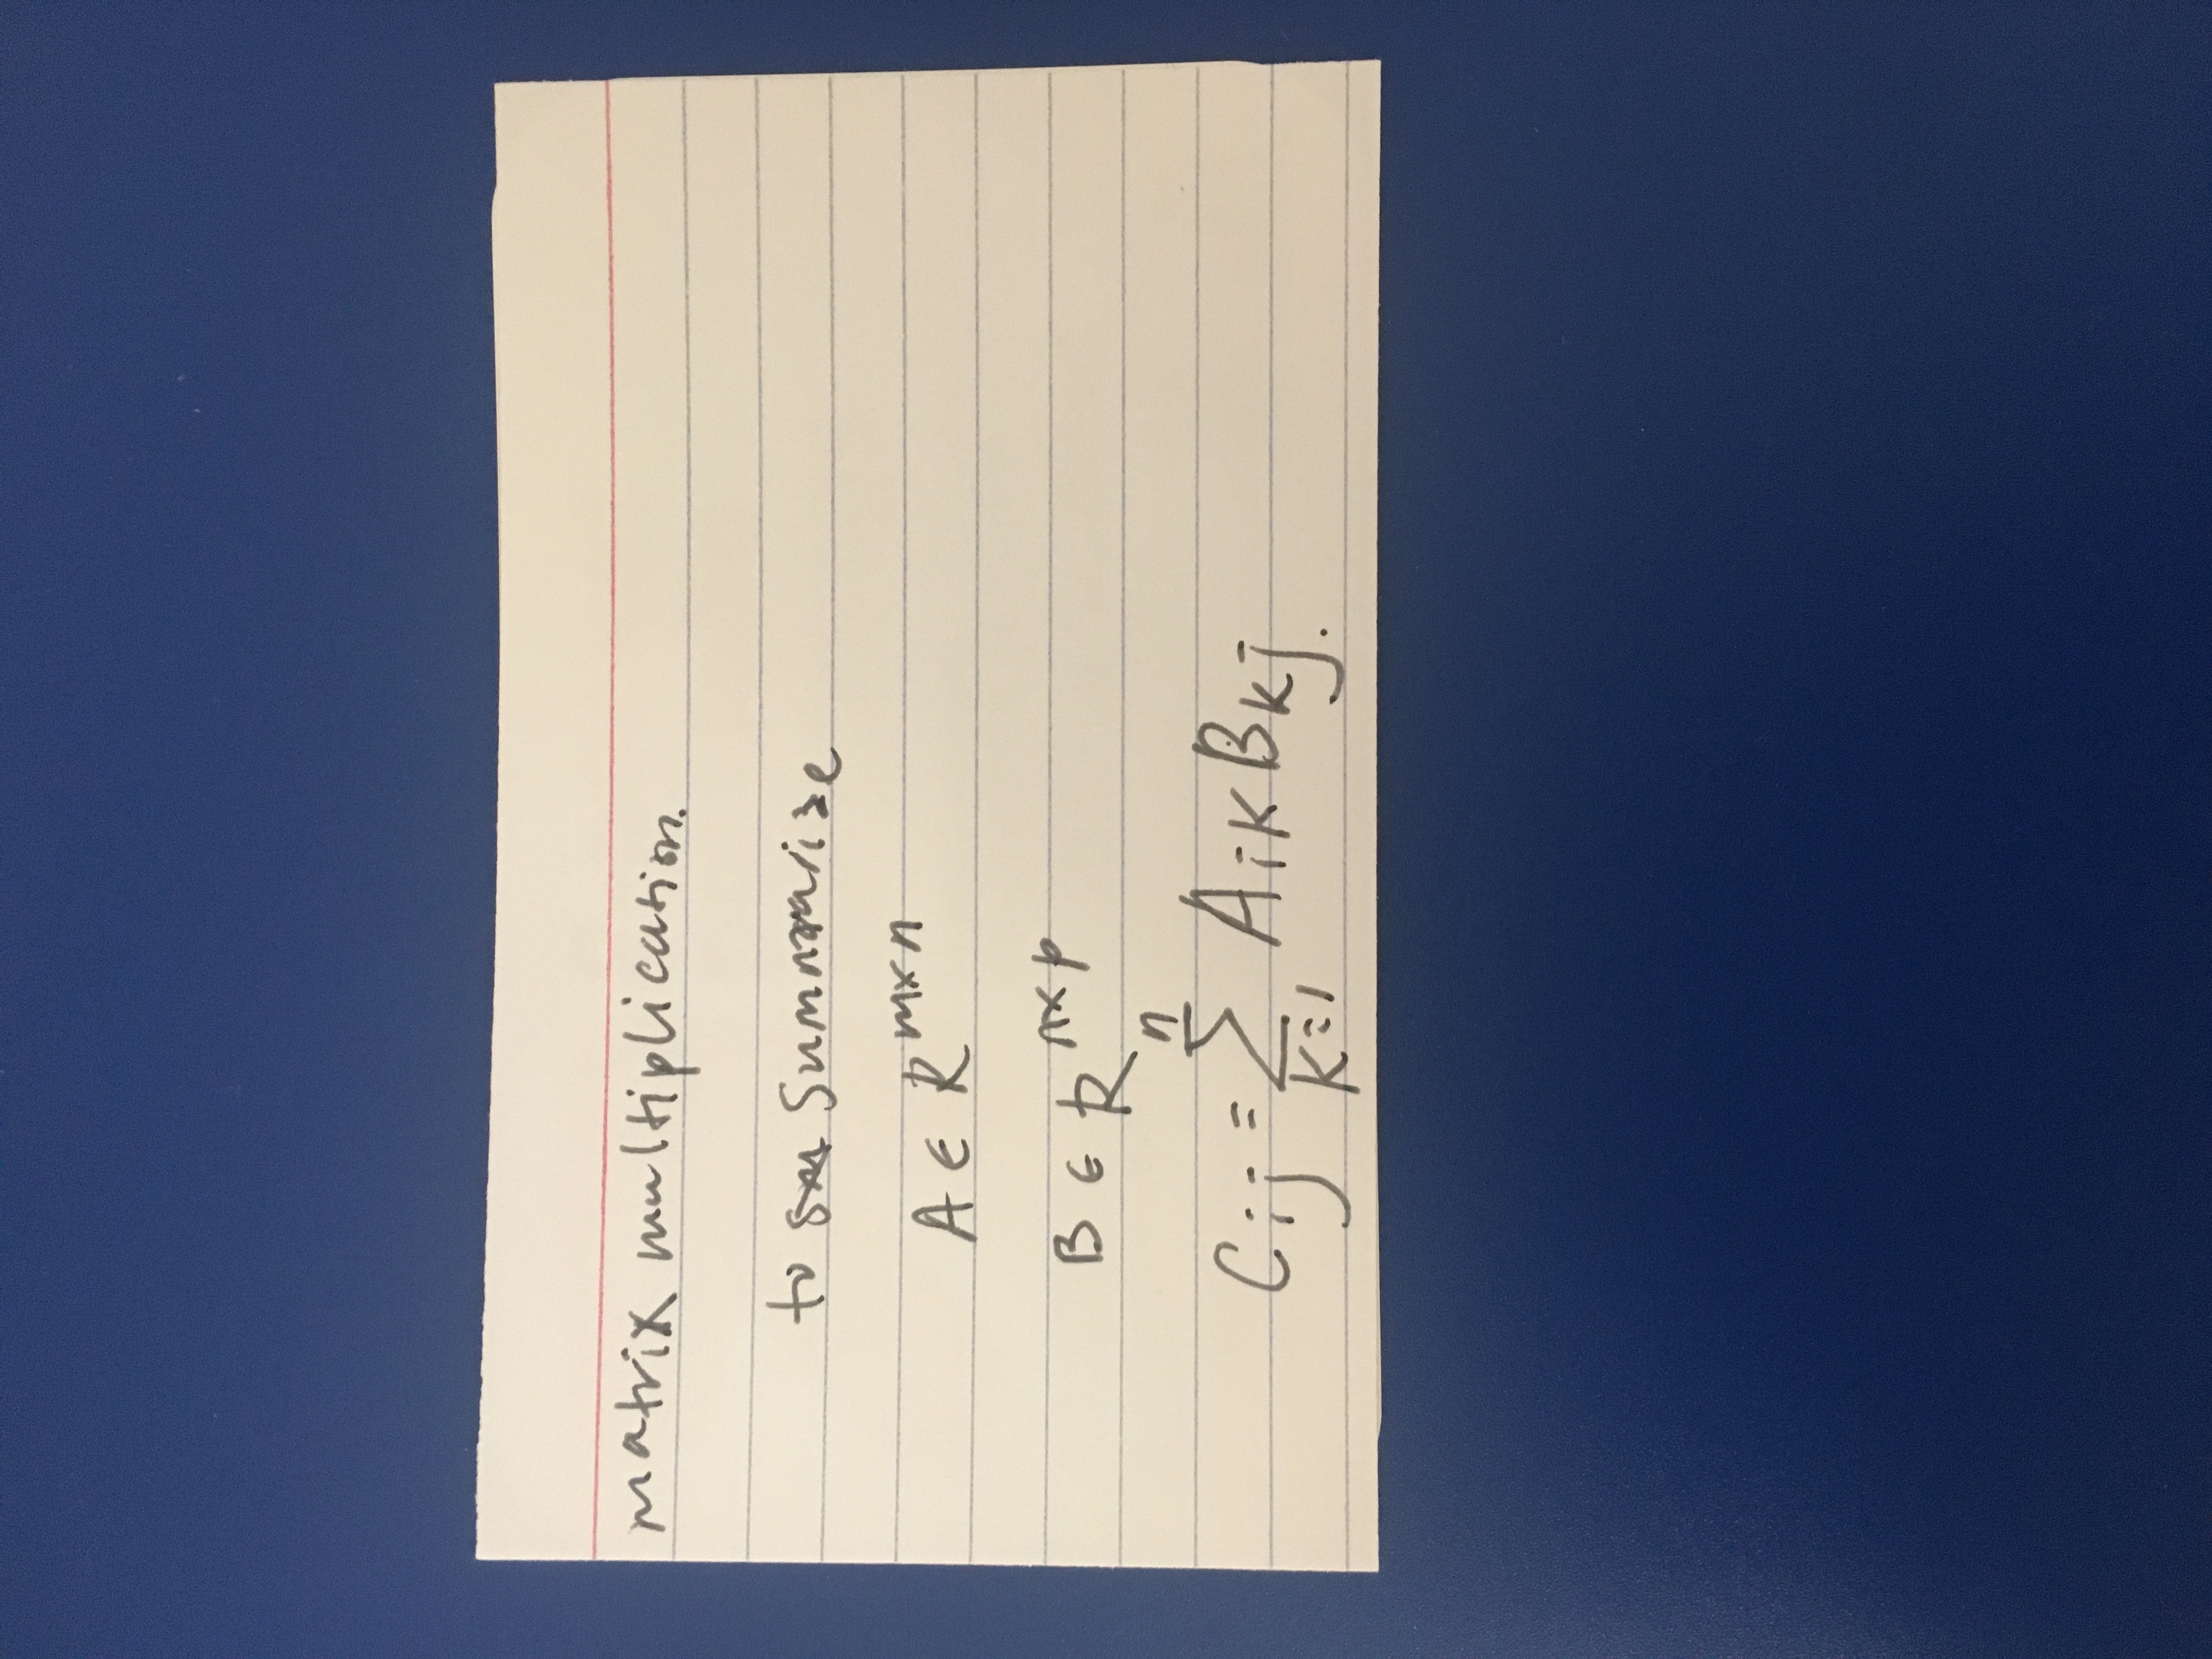 matrix multiplication.
to summarize
A ∈ R^{m×n}
B ∈ R^{n×p}
C_{ij} = \sum_{k=1}^{n} A_{ik} B_{kj}.